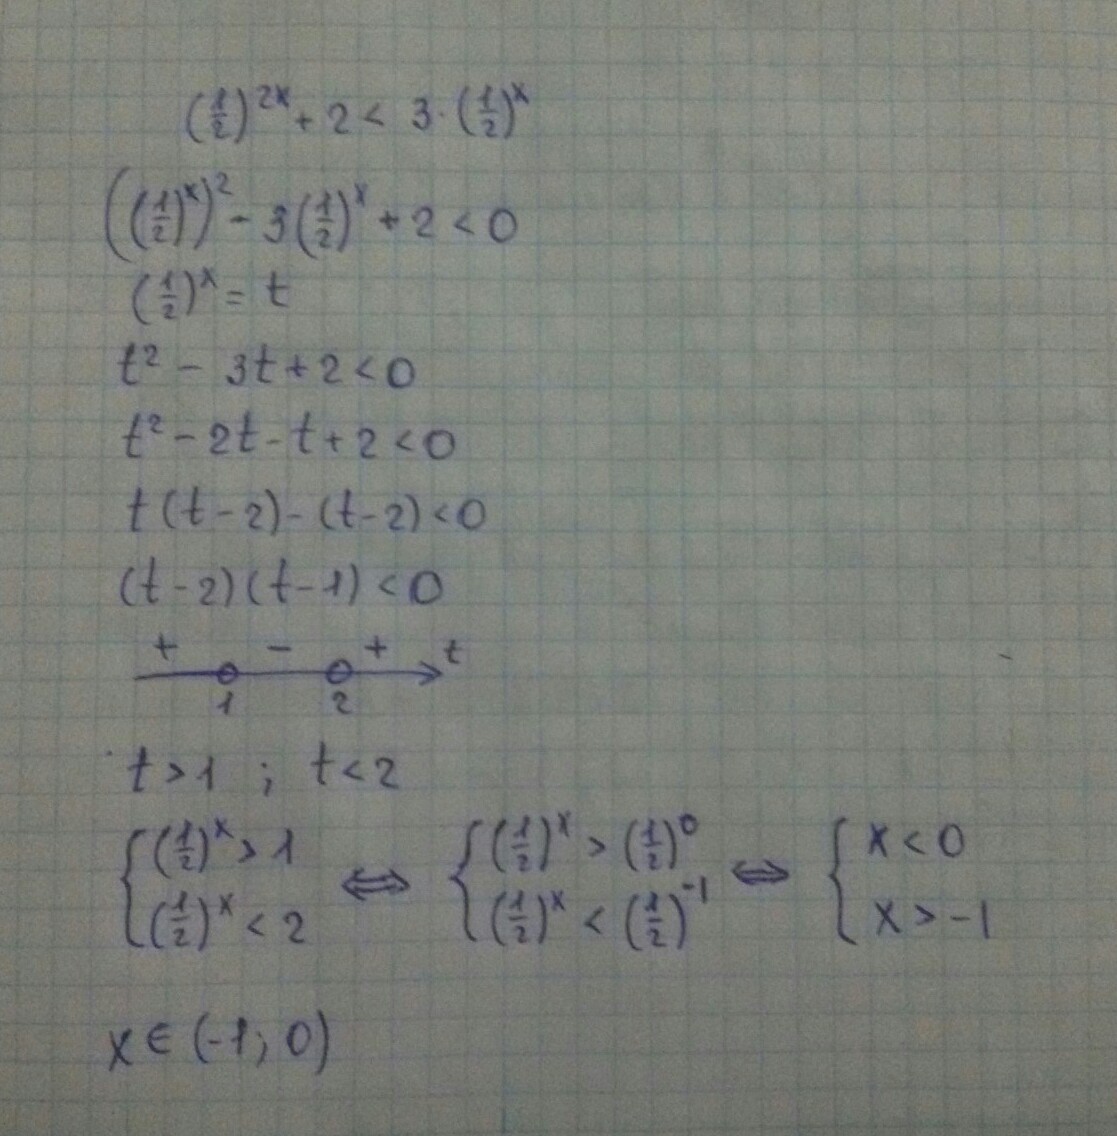 (1/2)^2x + 2 < 3 · (1/2)^x
((1/2)^x)^2 - 3(1/2)^x + 2 < 0
(1/2)^x = t
t² - 3t + 2 < 0
t² - 2t - t + 2 < 0
t(t-2) - (t-2) < 0
(t-2)(t-1) < 0
+ - + t
1 2
t > 1 ; t < 2
{ (1/2)^x > 1 ⇔ { (1/2)^x > (1/2)^0 ⇔ { x < 0
(1/2)^x < 2 (1/2)^x < (1/2)^-1 x > -1
x ∈ (-1; 0)